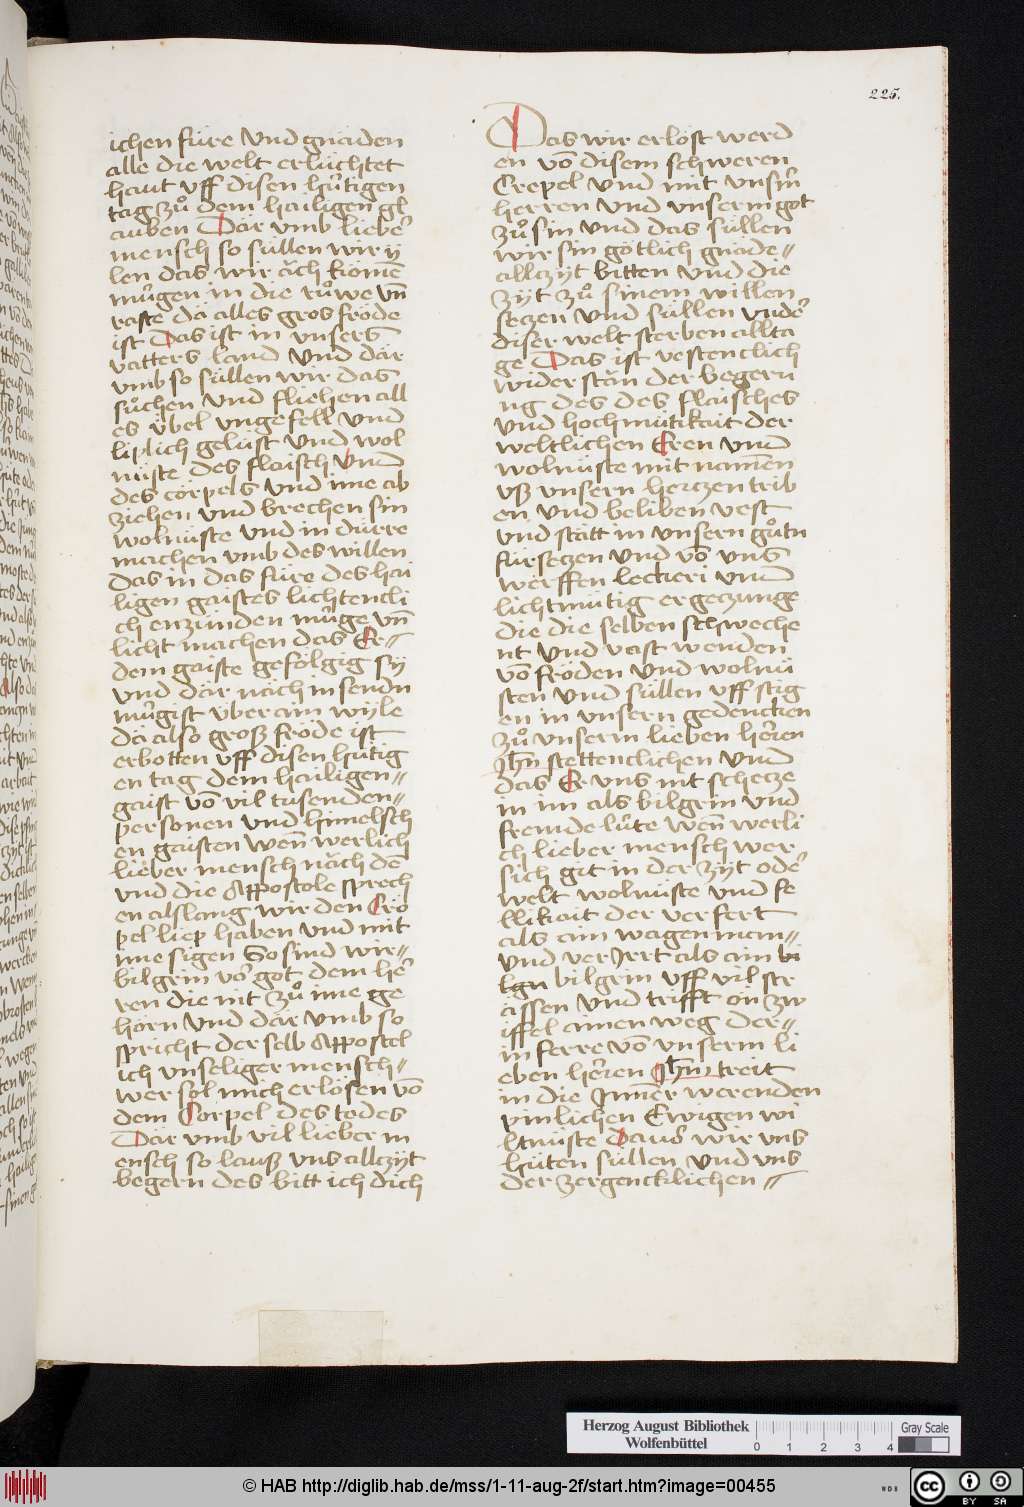 225.
ichen füre Vnd gnäden
alle die welt erlüchtet
haut vff disen hu̍tigen
tag zů dem hailigen gl
auben Där vmb liebeʳ
mensch so süllen wir ÿ
len das wir äch kömē
mu̍gen in die růwe vn̄
raste dä alles gros fröde
ist Das ist in vnsers
vatters land Vnd där
vmb so süllen wir das
sůchen Vnd fliehen all
es übel vngefell Vnd
liplich gelüst Vnd wol
nüste des flaisch Vnd
des cörpels Vnd ime ab
ziehen Vnd brechen sin
wolnüste Vnd in dürre
machen vmb des willen
das in das füre des hai
ligen gaistes lichtencli
ch enzünden mu̍ge vn̄
licht machen das Er=
dem gaiste gefölgig sÿ
Vnd där näch in sendn
mu̍gist über ain wÿle
dä also groß fröde ist
erbotten Vff disen hu̍tig
en tag dem hailigen=
gaist vō vil tusenden=
personen Vnd himelsch
en gaisten wen̄ werlich
lieber mensch näch dē
Vnd die Appostole sprech
en alslang wir den Crö
pel liep haben Vnd mit
ime sigen So sind wir=
bilgrin vor got dem he̍r
ren die nit zů ime ge
hörn Vnd där vmb so
spricht der selb Appostel
ich vnseliger mensch=
wer sol mich erlösen vō
dem Corpel des todes
Där vmb vil lieber m
ensch so lauß vns allczÿt
begern des bitt ich dich
Das wir erlöst werd
en vō disem schweren
Crepel Vnd mit vnserm
herren Vnd vnserm got
zů sin Vnd das süllen
wir sin götlich gnäde=
allczÿt bitten Vnd die
zÿt zů sinem willen
seczen Vnd süllen vndeʳ
diser welt sterben allta
ge Das ist vestenclich
wider stän der begeru
ng des des flaisches
Vnd hochmütikait der
weltlichen Eren Vnd
wolnüste mit namen
vß vnsern herczen trib
en Vnd beliben vest
Vnd stätt in vnsern gůtn
fürseczen Vnd vō vns
werffen leckeri Vnd
lichtmütig ergeczunge
die die selben schweche
nt Vnd vast wenden
vō fröden Vnd wolnü
sten Vnd süllen vff stig
en in vnsern gedencken
zů vnserm lieben he̍ren
Jhm̄ stettenclichen Vnd
das Er vns nit schecze
in im als bilgrin Vnd
fremde lüte wen̄ werli
ch lieber mensch wer
sich git in der zÿt odeʳ
welt wolnüste Vnd fe
llikait der verfert
als ain wagenman=
Vnd ver Jrrt als ain bi
lgn bilgrin Vff vil str
assen Vnd trifft on zw
iffel ainen weg der=
in ferre vō vnserm li
eben he̍ren Jhm̄ treit
in die Jm̄er werenden
pinlichen Ewigen wi
ltnüste Dauor wir vns
hüten süllen Vnd vns
der zergencklichen=
Herzog August Bibliothek
Wolfenbüttel
0 1 2 3 4
Gray Scale
© HAB http://diglib.hab.de/mss/1-11-aug-2f/start.htm?image=00455
WDB
cc BY SA